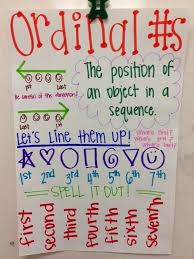 Ordinal #s
1st Last
Be careful of the direction!
Last 1st
The position of
an object in a
sequence.
Let's Line them up!
What's first?
1st 2nd 3rd 4th 5th 6th 7th
SPELL IT OUT!
first
second
third
fourth
fifth
sixth
seventh